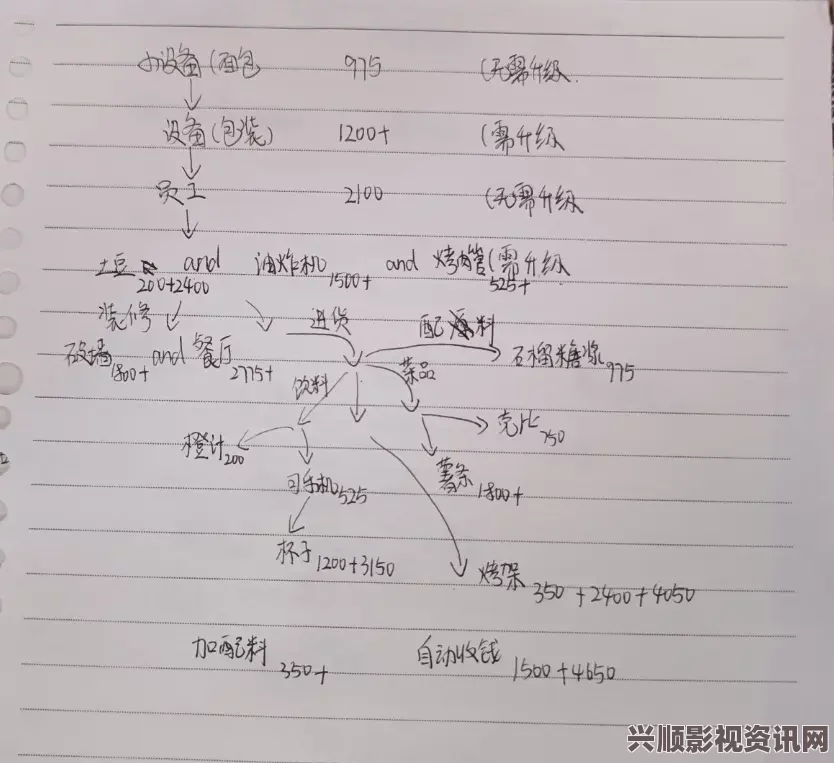 小设备(面包 975 (无需升级.
设备(包装) 1200+ (需升级
员工 2100 (无需升级
土豆 200+2400 and 油炸机 1500+ and 烤肉管 525+ (需升级
装修 进货 配料
砍墙 1800+ and 餐厅 2775+ 石榴糖浆 975
饮料 菜品
壳比 750
橙汁 200 薯条 1800+
可乐机 525
杯子 1200+3150 烤架 350+2400+4050
加配料 350+ 自动收钱 1500+4650
兴顺影视资讯网